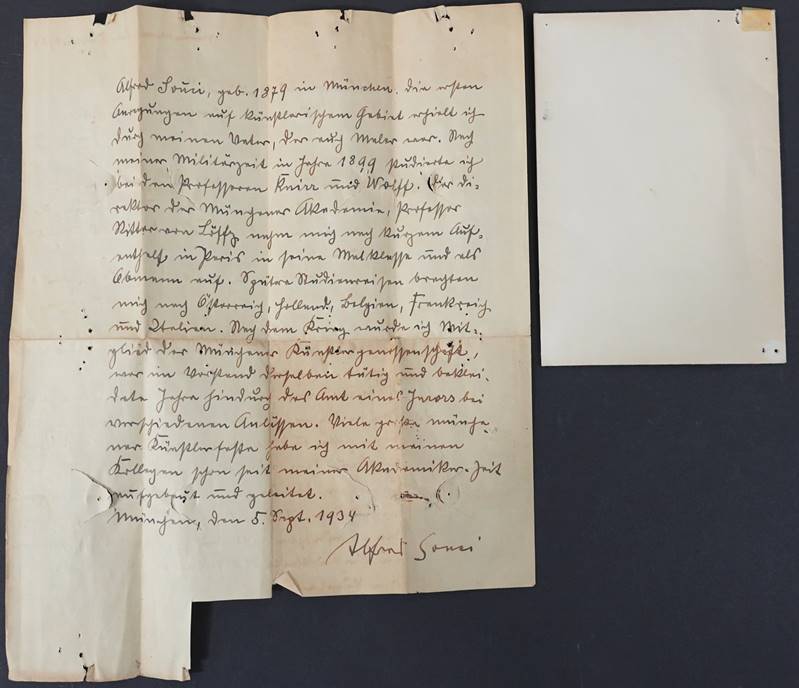 Alfred Souci, geb. 1879 in München. Die ersten
Anregungen auf künstlerischem Gebiet erhielt ich
durch meinen Vater, der auch Maler war. Nach
meiner Militärzeit im Jahre 1899 studierte ich
bei den Professoren Knirr und Wolff. Der Di-
rektor der Münchener Akademie, Professor
Ritter von Löfftz nahm mich nach kurzem Auf-
enthalt in Paris in seine Malklasse und als
Obmann auf. Spätere Studienreisen brachten
mich nach Österreich, Holland, Belgien, Frankreich
und Italien. Nach dem Krieg wurde ich Mit-
glied der Münchener Künstlergenossenschaft,
war im Vorstand derselben tätig und beklei-
dete Jahre hindurch das Amt eines Jurors bei
verschiedenen Anlässen. Viele große münche-
ner Künstlerfeste habe ich mit meinen
Kollegen schon seit meiner Akademiker-Zeit
aufgebaut und geleitet.
München, den 5. Sept. 1934
Alfred Souci